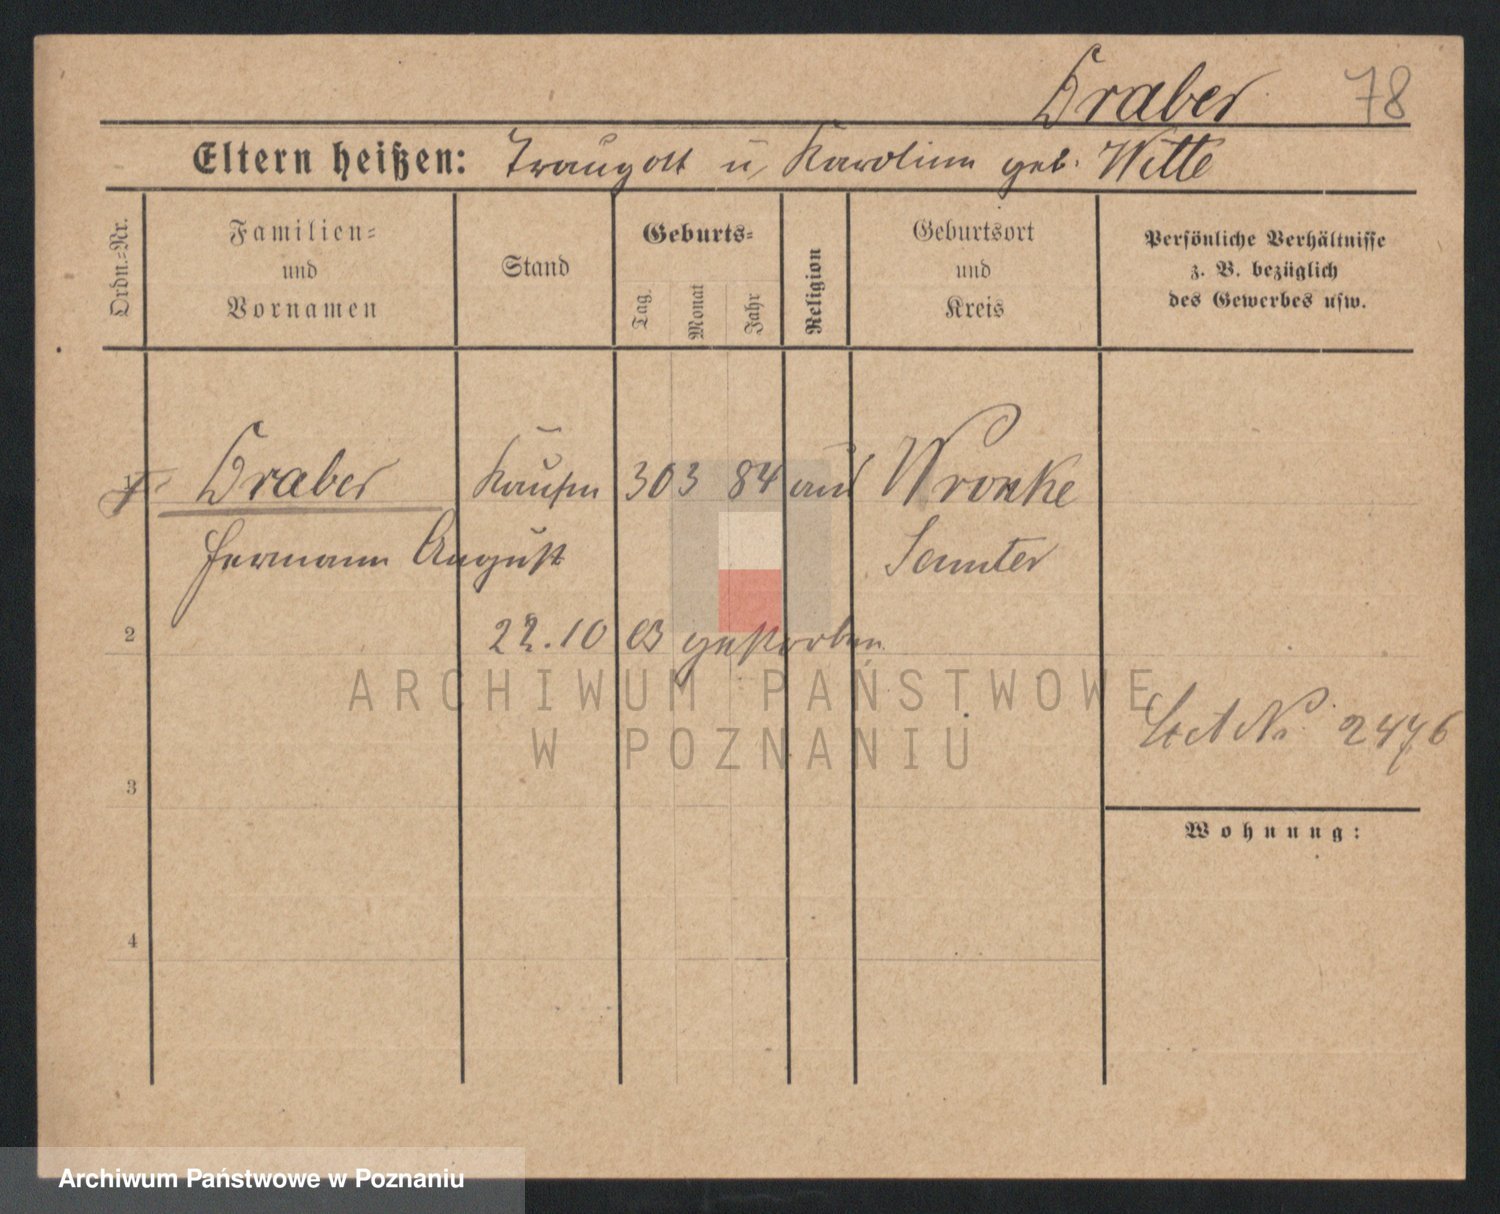 Draber 78
Eltern heißen: Traugott u. Karoline geb. Witte
Ordn.-Nr.
Familien-
und
Vornamen
Stand
Geburts-
Tag.
Monat
Jahr
Religion
Geburtsort
und
Kreis
Persönliche Verhältnisse
z. B. bezüglich
des Gewerbes usw.
Draber 30 3 84 Wronke
Hermann August Samter
2 22.10 03 gestorben
ARCHIWUM PAŃSTWOWE
W POZNANIU
2476
3
Wohnung:
4
Archiwum Państwowe w Poznaniu